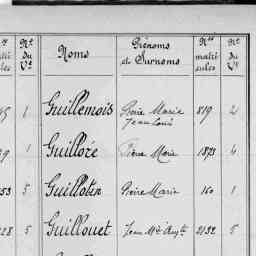 Nº du Vº Noms Prénoms et Surnoms Nºs matricules Nº du Vº
1 Guillemois Pierre Marie 819 2
Jean Louis
1 Guilloré Pierre Marie 1873 4
353 5 Guillotin Pierre Marie 160 1
228 5 Guillouet Jean Mie Augte 2132 5